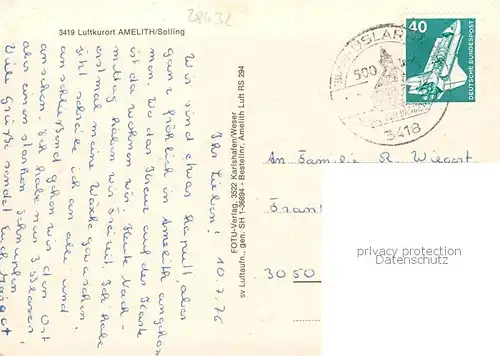 28632
3419 Luftkurort AMELITH/Solling
Ihr Lieben! 10.7.76
Wir sind etwas kaputt, aber
ganz fröhlich in Amelith angekom-
men. Wo das Kreuz auf der Karte
ist da wohnen wir. Heute Nach-
mittag haben wir frei. Ich habe
erstmal meine Wäsche gewaschen.
Jetzt schreibe ich an alle und
anschließend gehen wir den Ort
anschauen. Ich habe nur 3 Blasen
aber einen starken Schnupfen.
Viele Grüße sendet Euch Margot
FOTU-Verlag, 3522 Karlshafen/Weser
sv Luftaufn., gen. SH 1-36894 - Bestellnr. Amelith Luft RS 294
USLAR
500
3418
40
DEUTSCHE BUNDESPOST
An Familie R. Wiegert
3050
privacy protection
Datenschutz